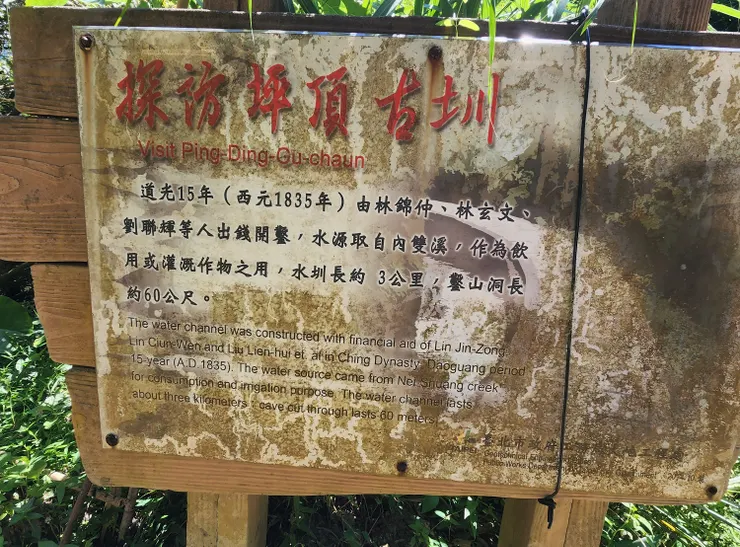 探訪坪頂古圳
Visit Ping-Ding-Gu-chaun
道光15年（西元1835年）由林錦仲、林玄文、
劉聯輝等人出錢開鑿，水源取自內雙溪，作為飲
用或灌溉作物之用，水圳長約 3公里，鑿山洞長
約60公尺。
The water channel was constructed with financial aid of Lin Jin-Zong,
Lin Ciun-Wen and Liu Lien-hui et. al in Ching Dynasty, Daoguang period
15-year (A.D.1835). The water source came from Nei-Shuang creek
for consumption and irrigation purpose. The water channel lasts
about three kilometers, cave cut through lasts 60 meters.
臺北市政府
Geotechnical
Public Works